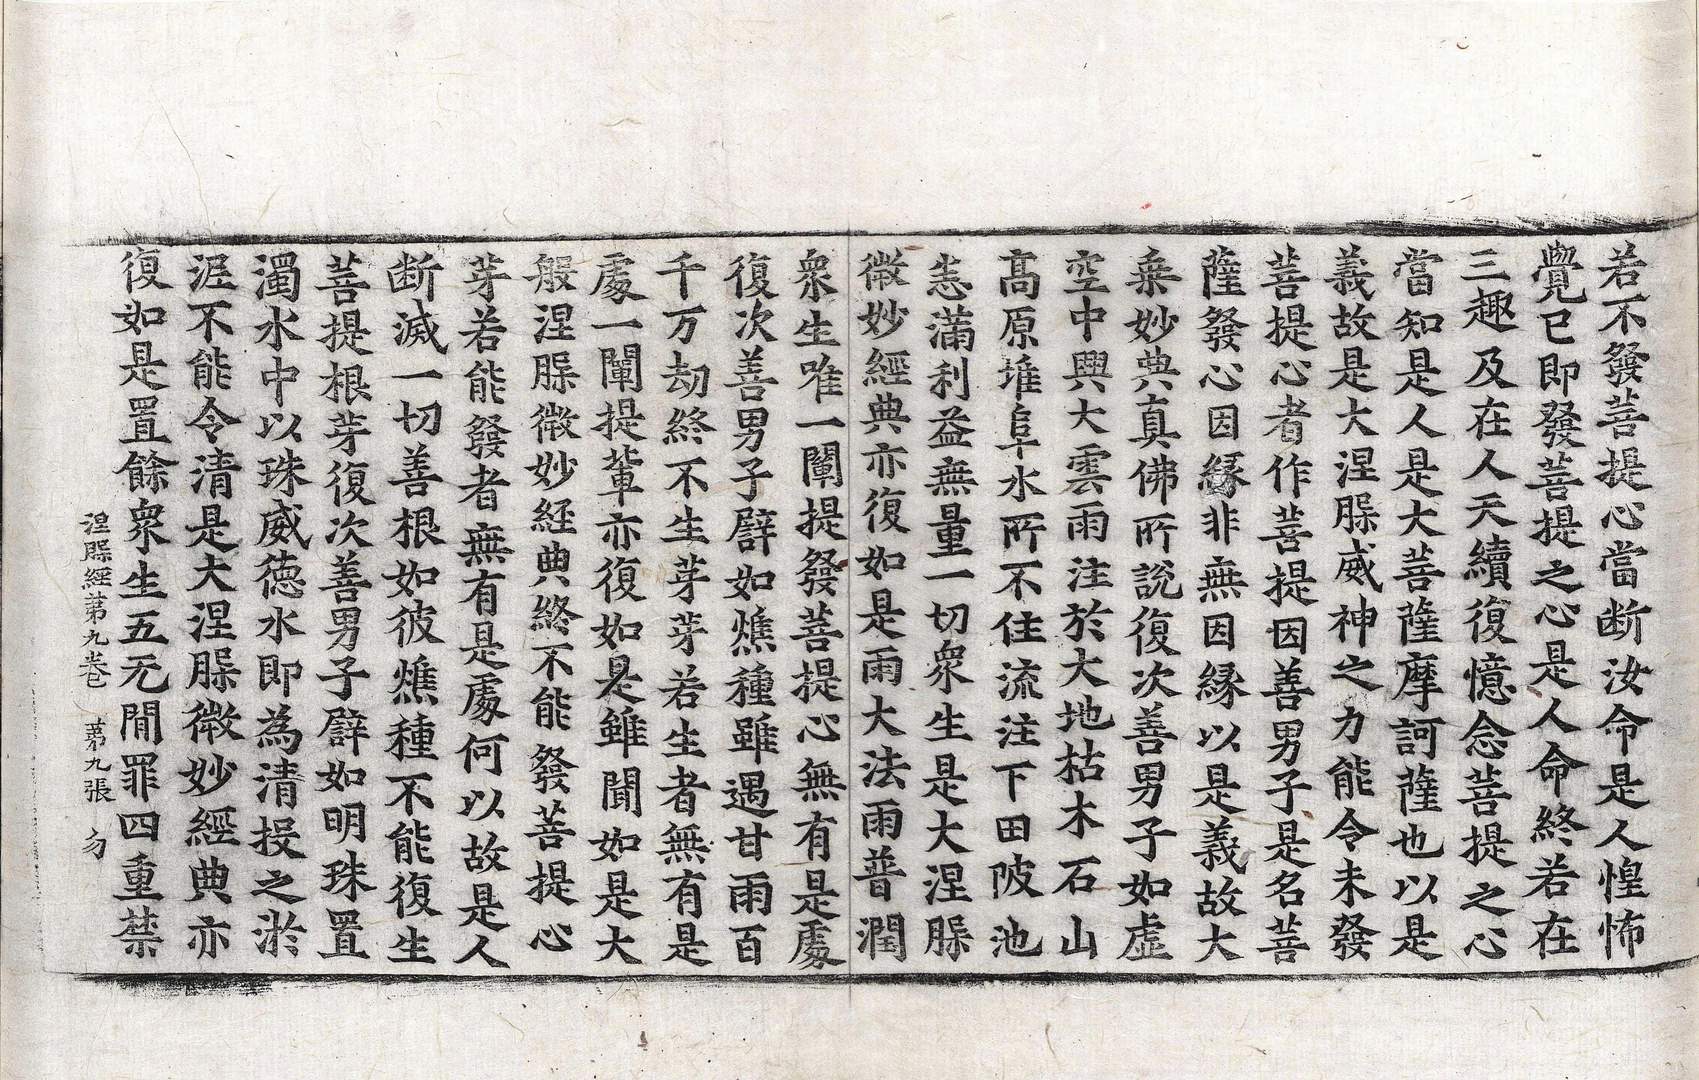 若不發菩提心當断汝命是人惶怖
覺已即發菩提之心是人命終若在
三趣及在人天續復憶念菩提之心
當知是人是大菩薩摩訶薩也以是
義故是大涅槃威神之力能令未發
菩提心者作菩提因善男子是名菩
薩發心因緣非無因緣以是義故大
乗妙典真佛所說復次善男子如虛
空中興大雲雨注於大地枯木石山
髙原堆阜水所不住流注下田陂池
悉滿利益無量一切衆生是大涅槃
微妙經典亦復如是雨大法雨普潤
衆生唯一闡提發菩提心無有是處
復次善男子譬如燋種雖遇甘雨百
千万劫終不生芽芽若生者無有是
處一闡提軰亦復如是雖聞如是大
般涅槃微妙經典終不能發菩提心
芽若能發者無有是處何以故是人
断滅一切善根如彼燋種不能復生
菩提根芽復次善男子譬如明珠置
濁水中以珠威德水即為清投之淤
泥不能令清是大涅槃微妙經典亦
復如是置餘衆生五无間罪四重禁
涅槃經第九卷 第九張